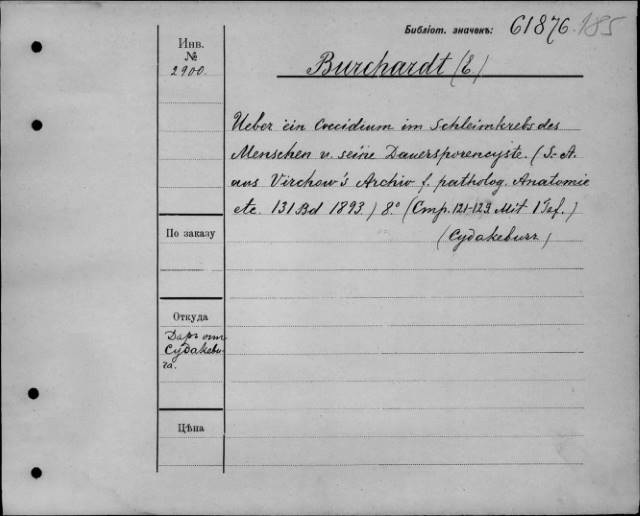 Библіот. значекъ: 61876 185
Инв.
№
2900.
Burchardt (E)
Ueber ein Coccidium im Schleimkrebs des
Menschen u. seine Dauersporencyste. (S.-A.
aus Virchow's Archiv f. patholog. Anatomie
etc. 131 Bd 1893.) 8.° (Стр. 121-129. Mit 1 Taf.)
(Судакевич)
По заказу
Откуда
Даръ отъ
Судакеви-
ча.
Цѣна